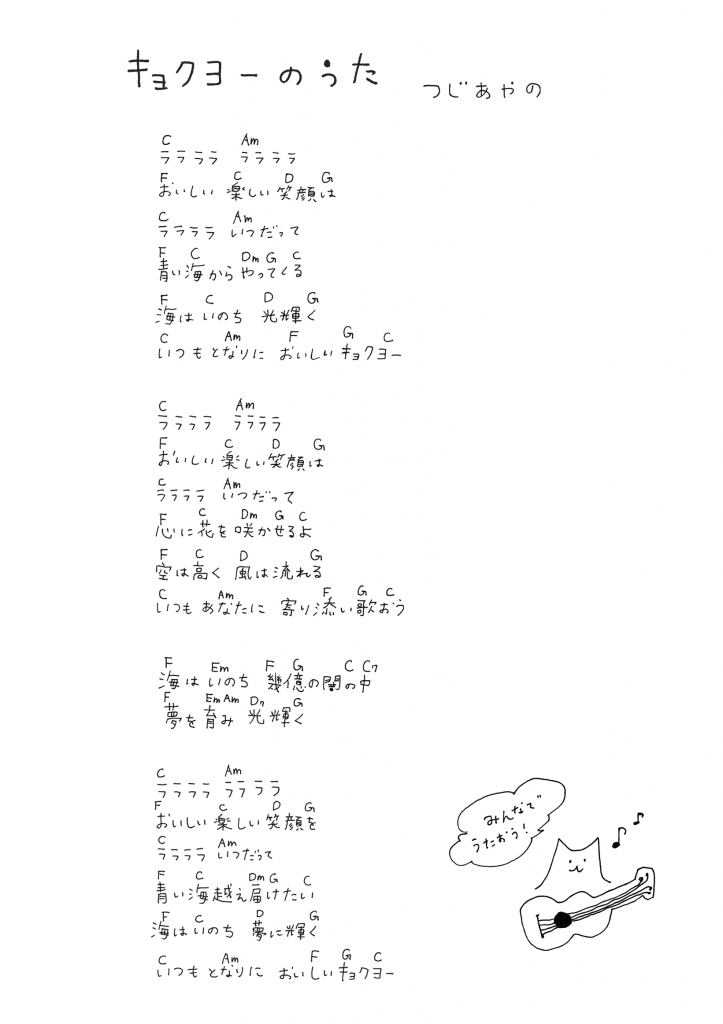 キョクヨーのうた つじあやの
C Am
ララララ ララララ
F C D G
おいしい 楽しい 笑顔は
C Am
ララララ いつだって
F C Dm G C
青い海から やってくる
F C D G
海は いのち 光輝く
C Am F G C
いつもとなりに おいしいキョクヨー
C Am
ララララ ララララ
F C D G
おいしい 楽しい笑顔は
C Am
ララララ いつだって
F C Dm G C
心に花を咲かせるよ
F C D G
空は高く 風は流れる
C Am F G C
いつも あなたに 寄り添い歌おう
F Em F G C C7
海は いのち 幾億の闇の中
F Em Am D7 G
夢を育み 光輝く
C Am
ララララ ララララ
F C D G
おいしい 楽しい 笑顔を
C Am
ララララ いつだって
F C Dm G C
青い海越え届けたい
F C D G
海は いのち 夢に輝く
C Am F G C
いつもとなりに おいしいキョクヨー
みんなで
うたおう!